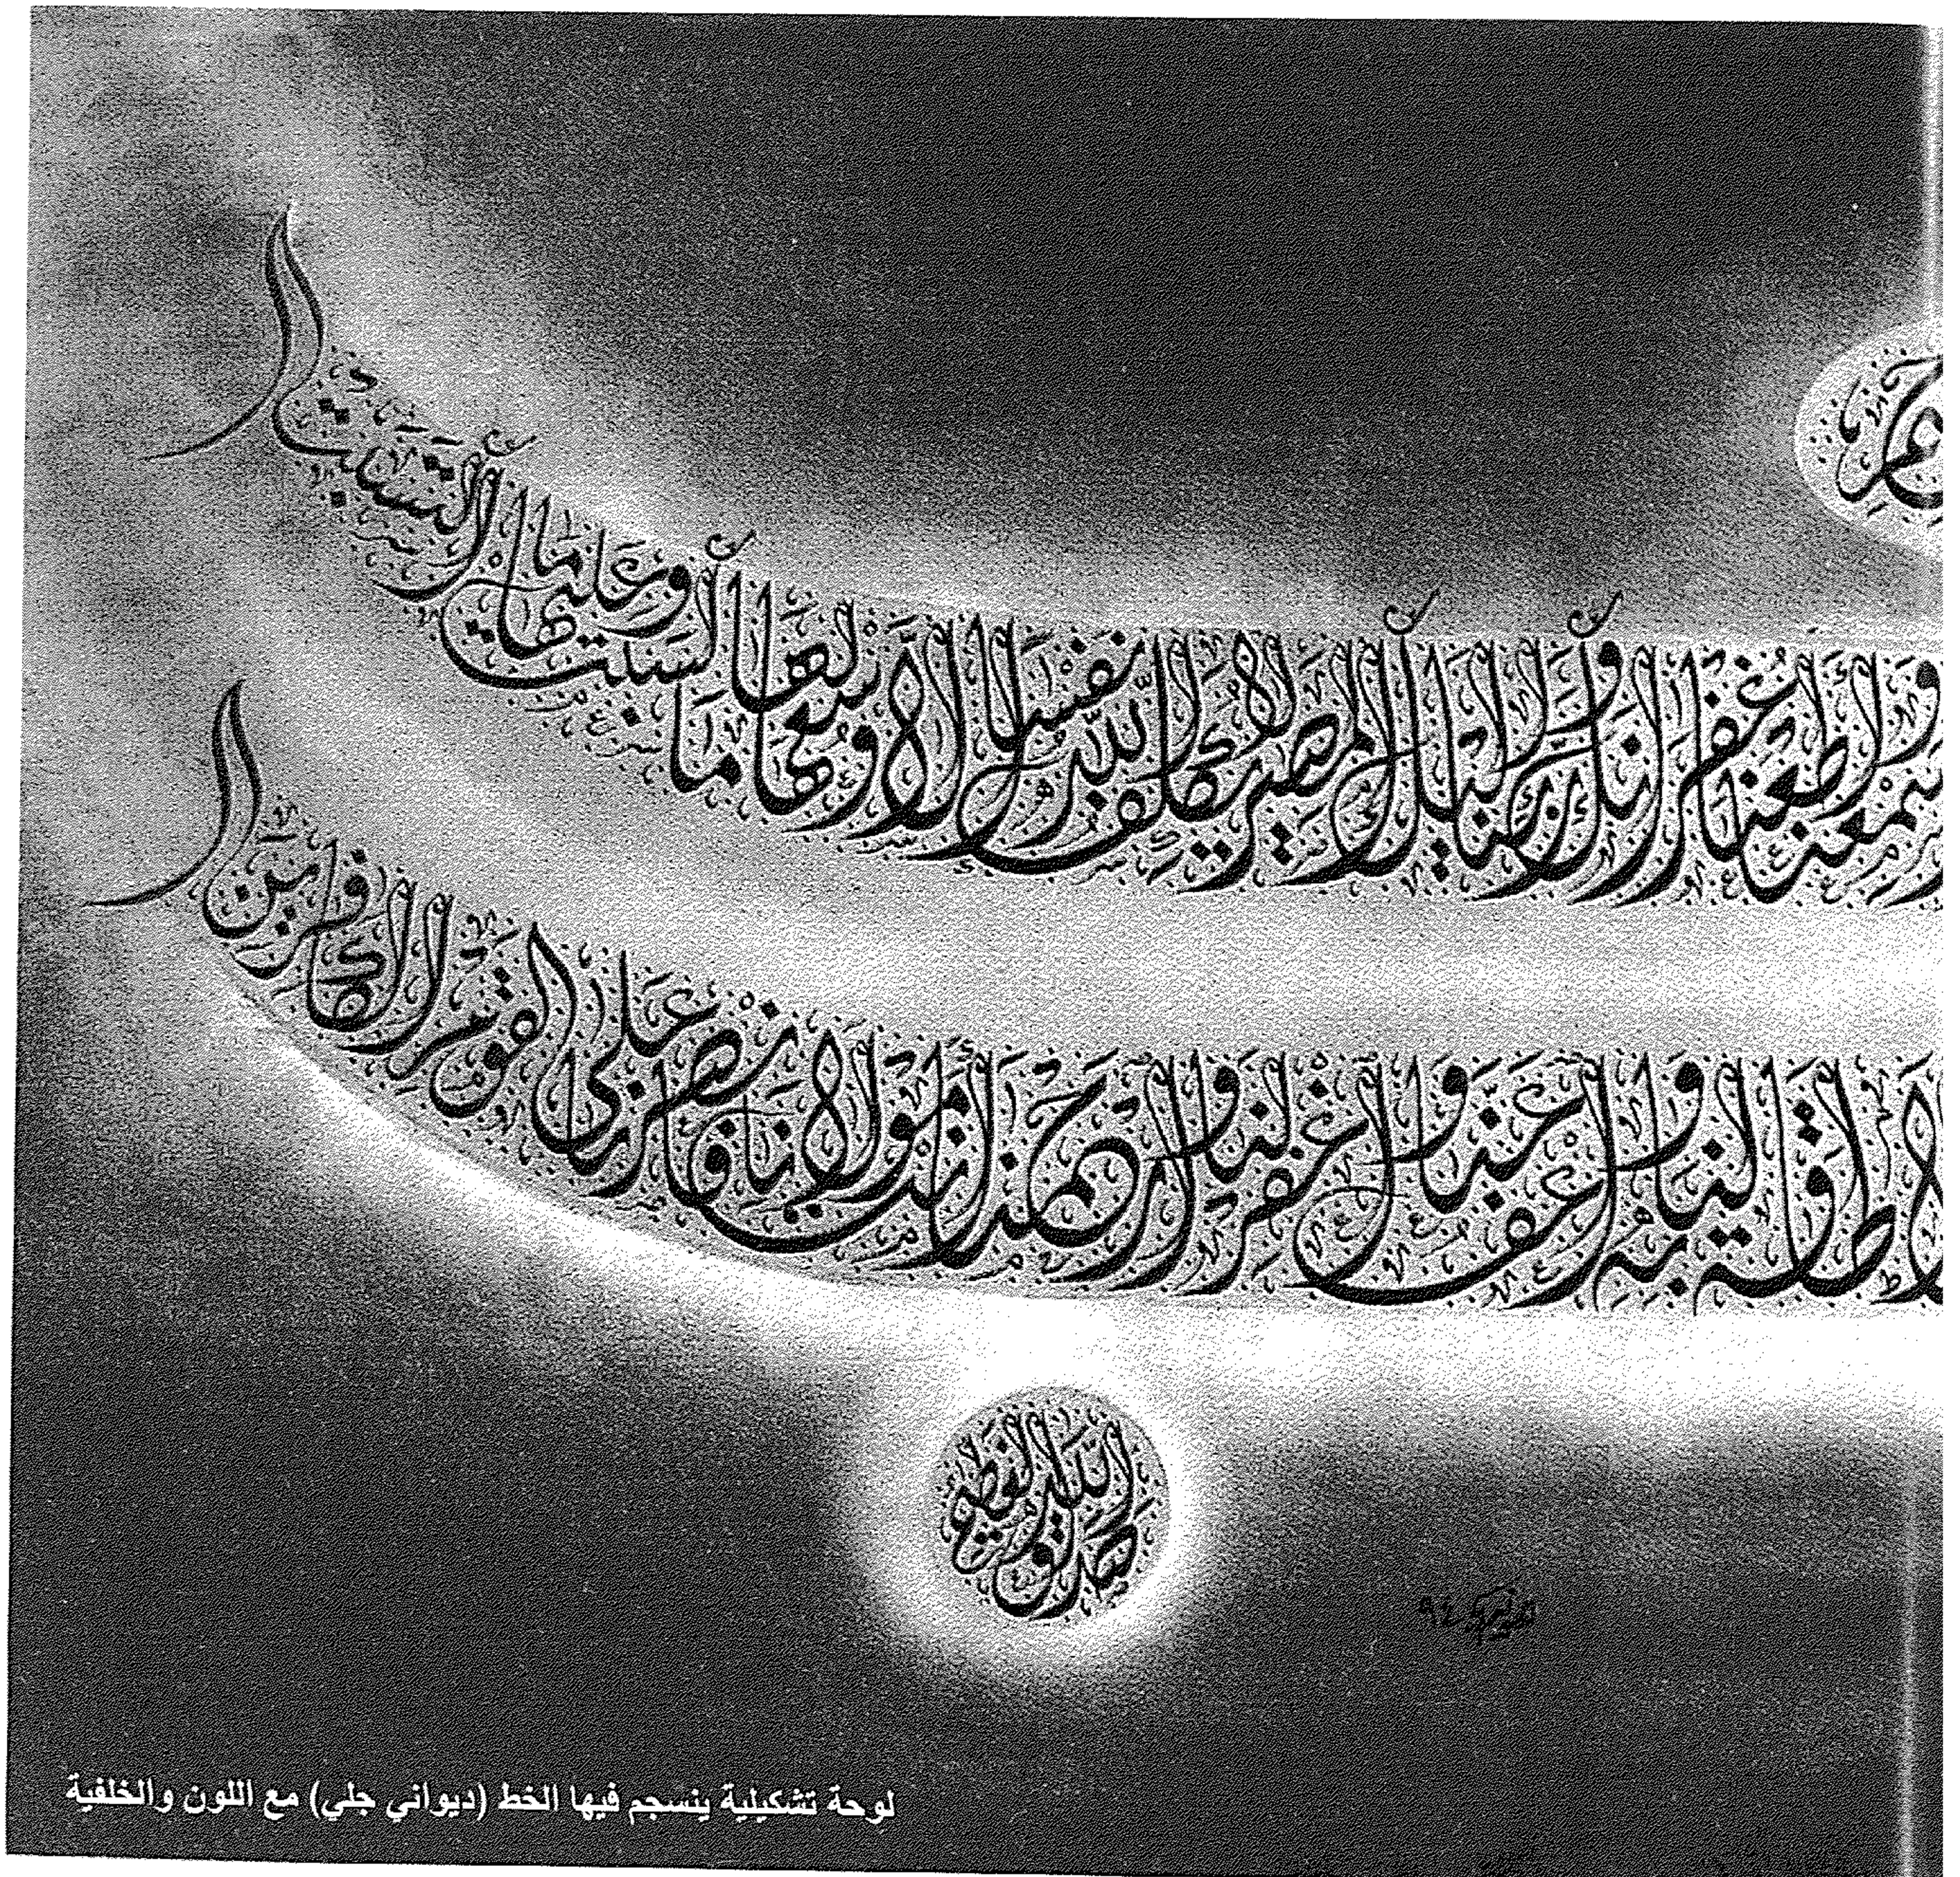 سمعنا وأطعنا غفرانك ربنا وإليك المصير لا يكلف الله نفسا إلا وسعها لها ما كسبت وعليها ما اكتسبت
لا طاقة لنا به واعف عنا واغفر لنا وارحمنا أنت مولانا فانصرنا على القوم الكافرين
صدق الله العظيم
٩٤
لوحة تشكيلية ينسجم فيها الخط (ديواني جلي) مع اللون والخلفية